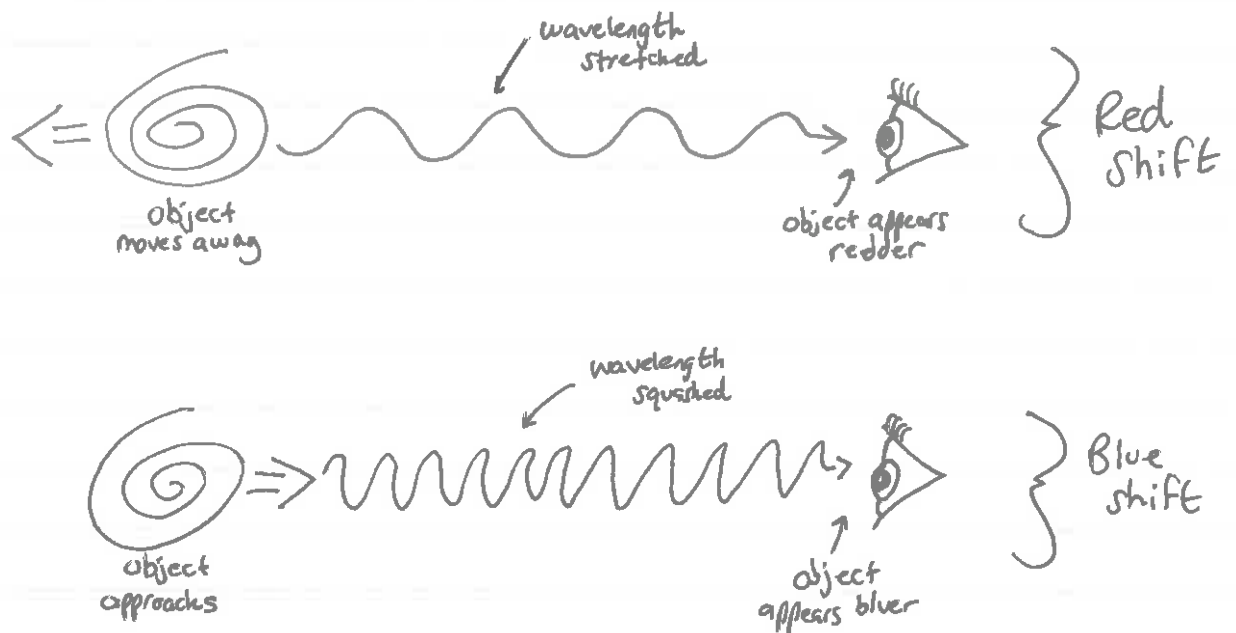 wavelength
stretched
object
moves away
object appears
redder
Red
shift
wavelength
squashed
object
approachs
object
appears bluer
Blue
shift